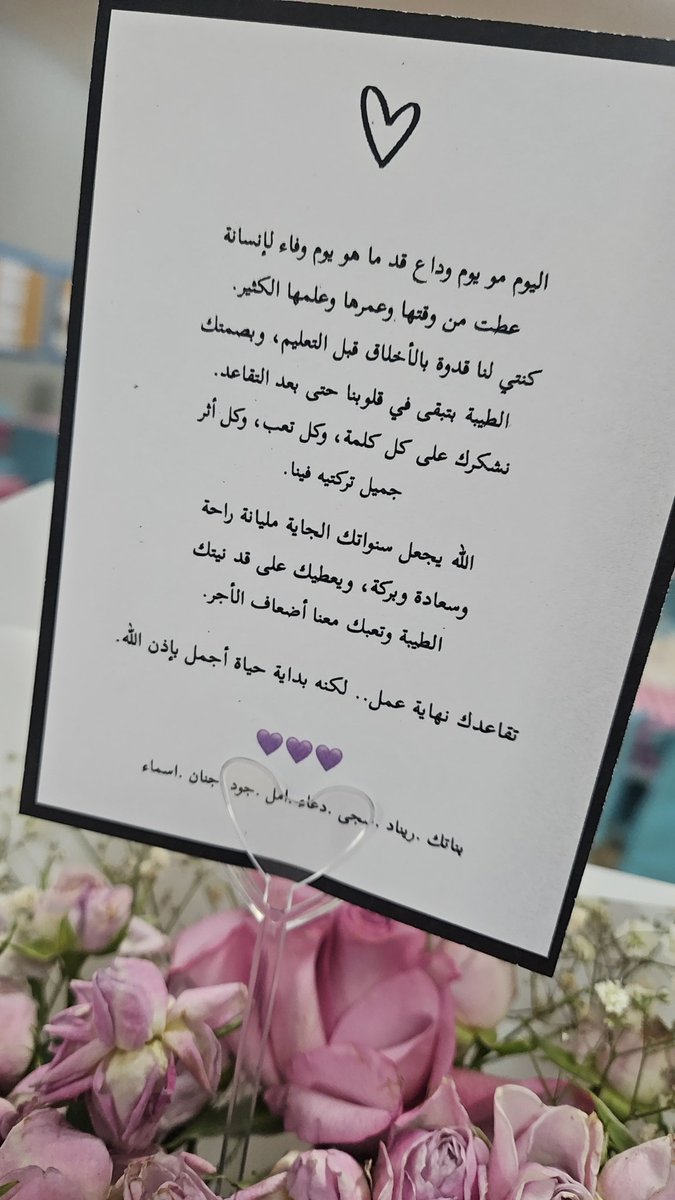 اليوم مو يوم وداع قد ما هو يوم وفاء لإنسانة
عطت من وقتها وعمرها وعلمها الكثير.
كنتي لنا قدوة بالأخلاق قبل التعليم، وبصمتك
الطيبة بتبقى في قلوبنا حتى بعد التقاعد.
نشكرك على كل كلمة، وكل تعب، وكل أثر
جميل تركتيه فينا.
الله يجعل سنواتك الجاية مليانة راحة
وسعادة وبركة، ويعطيك على قد نيتك
الطيبة وتعبك معنا أضعاف الأجر.
تقاعدك نهاية عمل.. لكنه بداية حياة أجمل بإذن الله.
💜💜💜
بناتك .ريناد .دعاء .امل .جود .جنان .اسماء